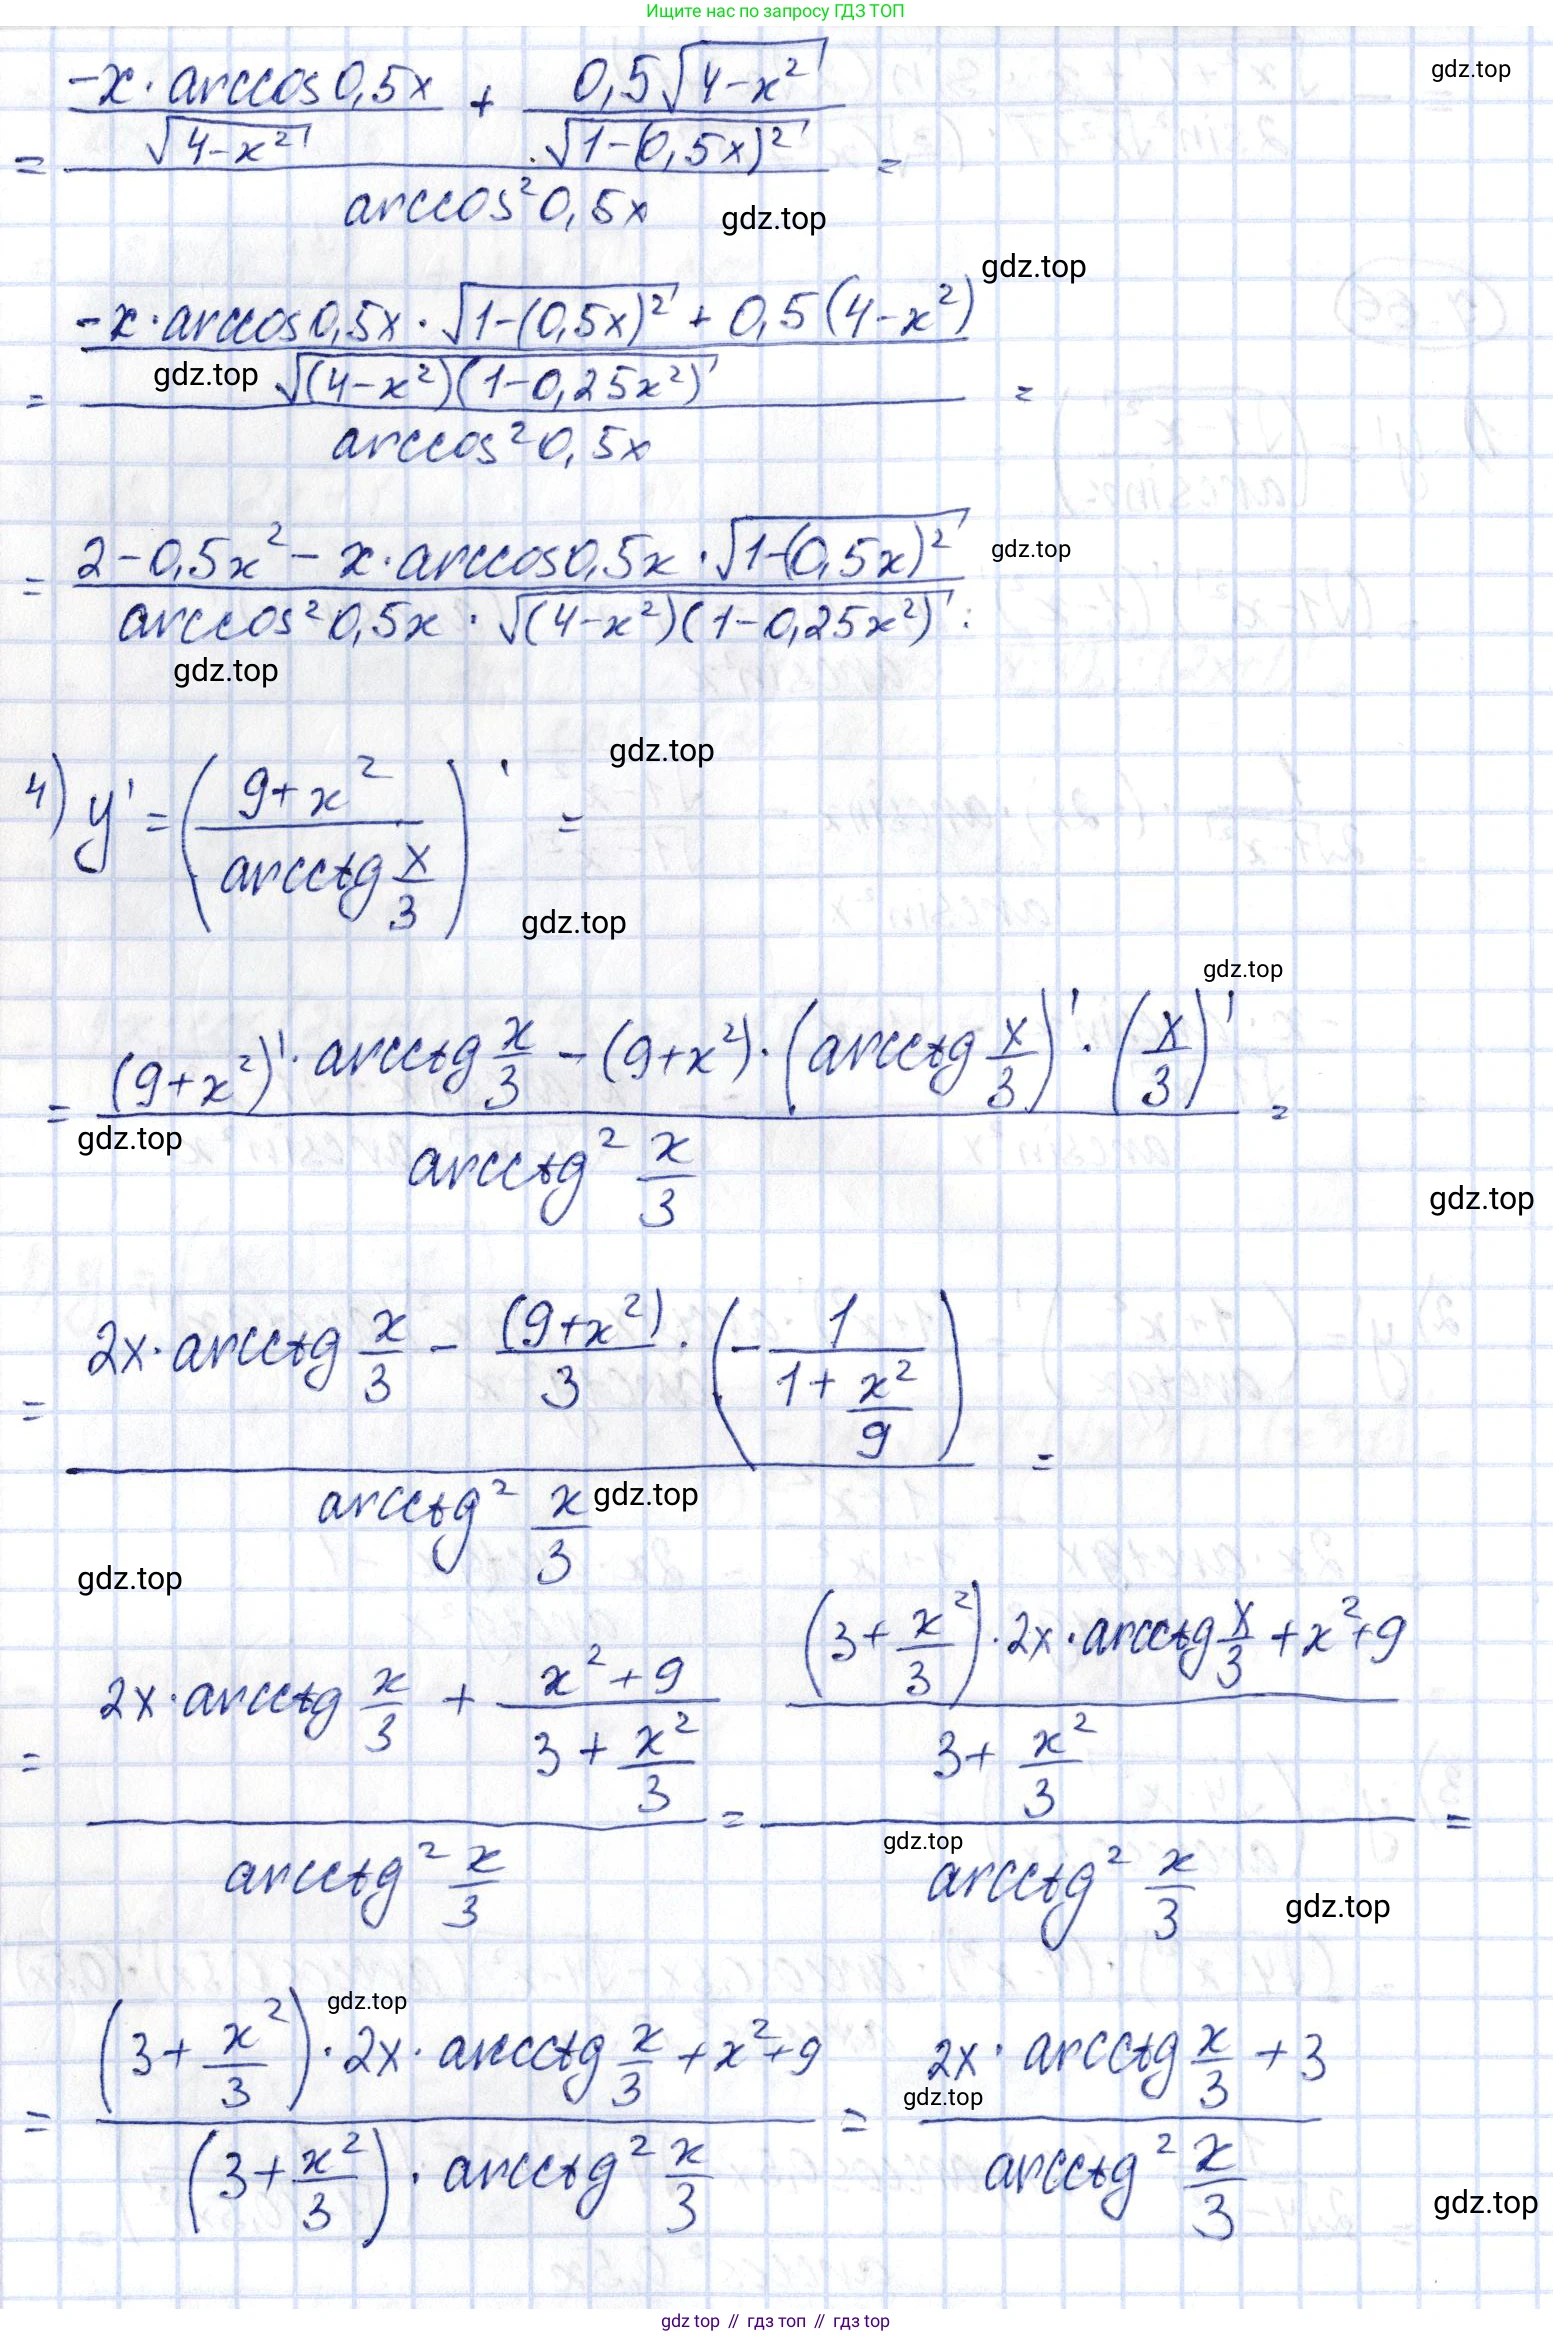 Ищите нас по запросу ГДЗ ТОП
gdz.top
= (-x · arccos 0,5x / √(4-x²) + 0,5√(4-x²) / √(1-(0,5x)²)) / arccos² 0,5x =
gdz.top
gdz.top
= (-x · arccos 0,5x · √(1-(0,5x)²) + 0,5(4-x²) / √((4-x²)(1-0,25x²))) / arccos² 0,5x =
gdz.top
= (2-0,5x² - x · arccos 0,5x · √(1-(0,5x)²)) / (arccos² 0,5x · √((4-x²)(1-0,25x²))) :
gdz.top
gdz.top
gdz.top
4) y' = ((9+x²) / (arcctg x/3))' =
gdz.top
gdz.top
= ((9+x²)' · arcctg x/3 - (9+x²) · (arcctg x/3)' · (x/3)') / (arcctg² x/3) =
gdz.top
gdz.top
= (2x · arcctg x/3 - (9+x²)/3 · (- 1/(1+x²/9))) / (arcctg² x/3) =
gdz.top
gdz.top
= (2x · arcctg x/3 + (x²+9)/(3+x²/3)) / (arcctg² x/3) = (((3+x²/3) · 2x · arcctg x/3 + x²+9) / (3+x²/3)) / (arcctg² x/3) =
gdz.top
gdz.top
gdz.top
= ((3+x²/3) · 2x · arcctg x/3 + x²+9) / ((3+x²/3) · arcctg² x/3) = (2x · arcctg x/3 + 3) / (arcctg² x/3)
gdz.top
gdz.top
gdz top // гдз топ // гдз top